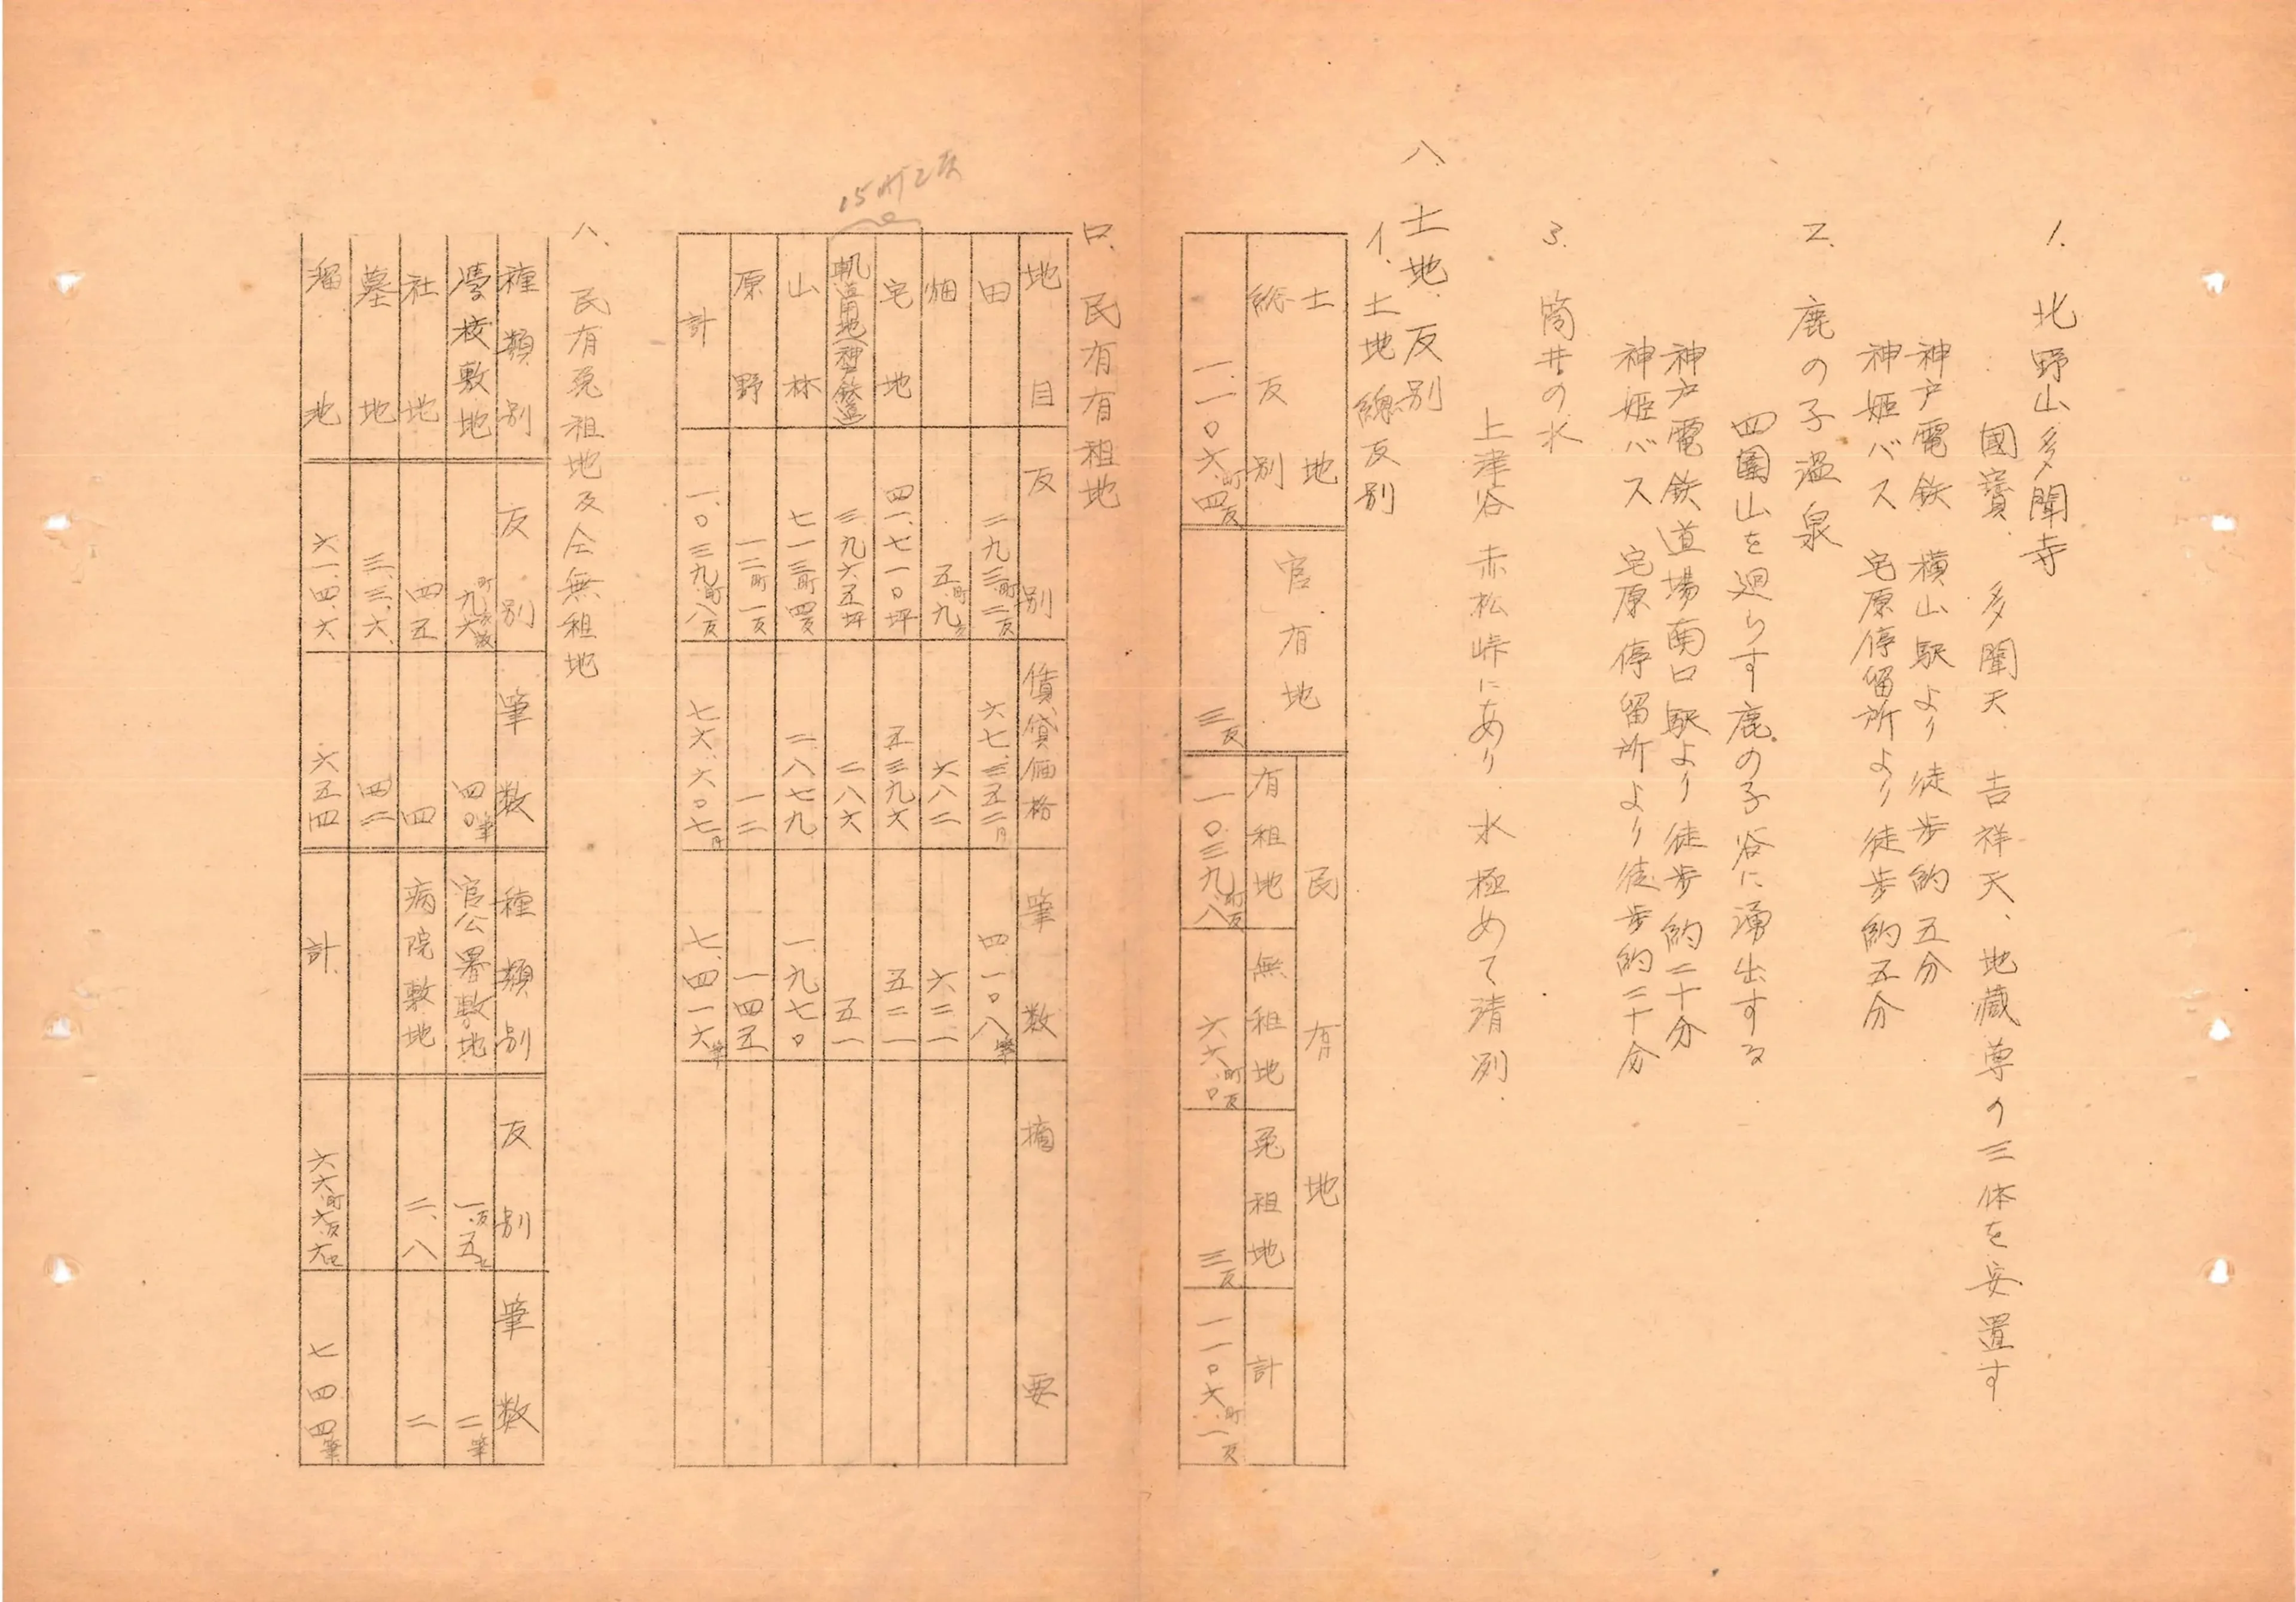 1. 北野山多聞寺
國寶 多聞天 吉祥天、地蔵尊の三体を安置す
神戸電鉄 横山駅より徒歩約五分
神姫バス 宅原停留所より徒歩約五分
2. 鹿の子温泉
四圍山を廻らす鹿の子谷に湧出する
神戸電鉄道場南口駅より徒歩約二十分
神姫バス 宅原停留所より徒歩約二十分
3. 筒井の水
上津谷赤松峠にあり 水極めて清冽
八、土地反別
イ. 土地總反別
土地
総反別
一.一〇六町四反
官有地
三反
民有地
有租地
一〇三九町八反
無租地
六六町〇反
免租地
三反
計
一一〇六町一反
ロ. 民有有租地
地目 反別 賃貸価格 筆数 摘要
田 二九三町二反 六七.三五二円 四.一〇八筆
畑 五町九反 六八二 六二一
宅地 四一.七一〇坪 五三九六 五二一
軌道用地(神戸鉄道) 三九六五坪 二八六 五一
山林 七一三町四反 二.八七九 一.九七〇
原野 一二町一反 一二 一四五
計 一.〇三九町八反 七六.六〇七円 七.四一六筆
15町2反
ハ、民有免租地及仝無租地
種類別 反別 筆数 種類別 反別 筆数
學校敷地 四〇筆 官公署敷地 二筆
社地 四五 四 病院敷地 二.八 二
墓地 三.三.六 四二
溜池 六一.四.六 六五四 計 七四四筆